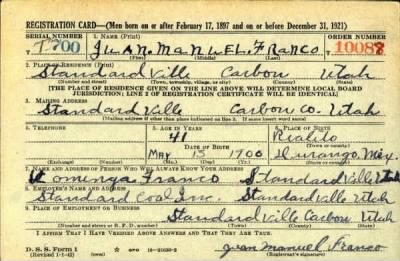 REGISTRATION CARD—(Men born on or after February 17, 1897 and on or before December 31, 1921)
SERIAL NUMBER 1. NAME (Print) ORDER NUMBER
T700 JUAN MANUEL FRANCO 10088
(First) (Middle) (Last)
2. PLACE OF RESIDENCE (Print)
Standard Ville Carbon Utah
(Number and street) (Town, township, village, or city) (County) (State)
[THE PLACE OF RESIDENCE GIVEN ON THE LINE ABOVE WILL DETERMINE LOCAL BOARD
JURISDICTION; LINE 2 OF REGISTRATION CERTIFICATE WILL BE IDENTICAL]
3. MAILING ADDRESS
Standard Ville Carbon Co. Utah
[Mailing address if other than place indicated on line 2. If same insert word same]
4. TELEPHONE 5. AGE IN YEARS 6. PLACE OF BIRTH
41
DATE OF BIRTH (Town or county)
May 15 1900 Durango, Mex.
(Exchange) (Number) (Mo.) (Day) (Yr.) (State or country)
7. NAME AND ADDRESS OF PERSON WHO WILL ALWAYS KNOW YOUR ADDRESS
Franco Standard Ville Utah
8. EMPLOYER'S NAME AND ADDRESS
Standard Coal Inc. Standard Ville Utah
9. PLACE OF EMPLOYMENT OR BUSINESS
Standard Ville Carbon Utah
(Number and street or R. F. D. number) (Town) (County) (State)
I AFFIRM THAT I HAVE VERIFIED ABOVE ANSWERS AND THAT THEY ARE TRUE.
D. S. S. Form 1
(Revised 1-1-42) Juan Manuel Franco
(Registrant's signature)